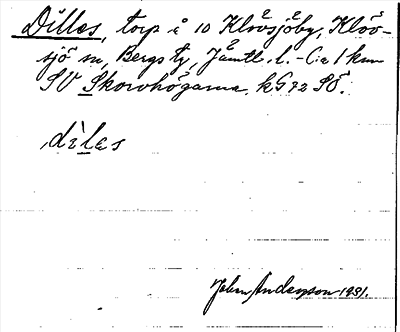 Dilles, torp å 10 Klövsjöby, Klöv-
sjö sn, Bergs tg, Jämtl. l. - C:a 1 km
SV Skorvhögarna. kG 72 SÖ.
diles
Johan Anderson 1931.